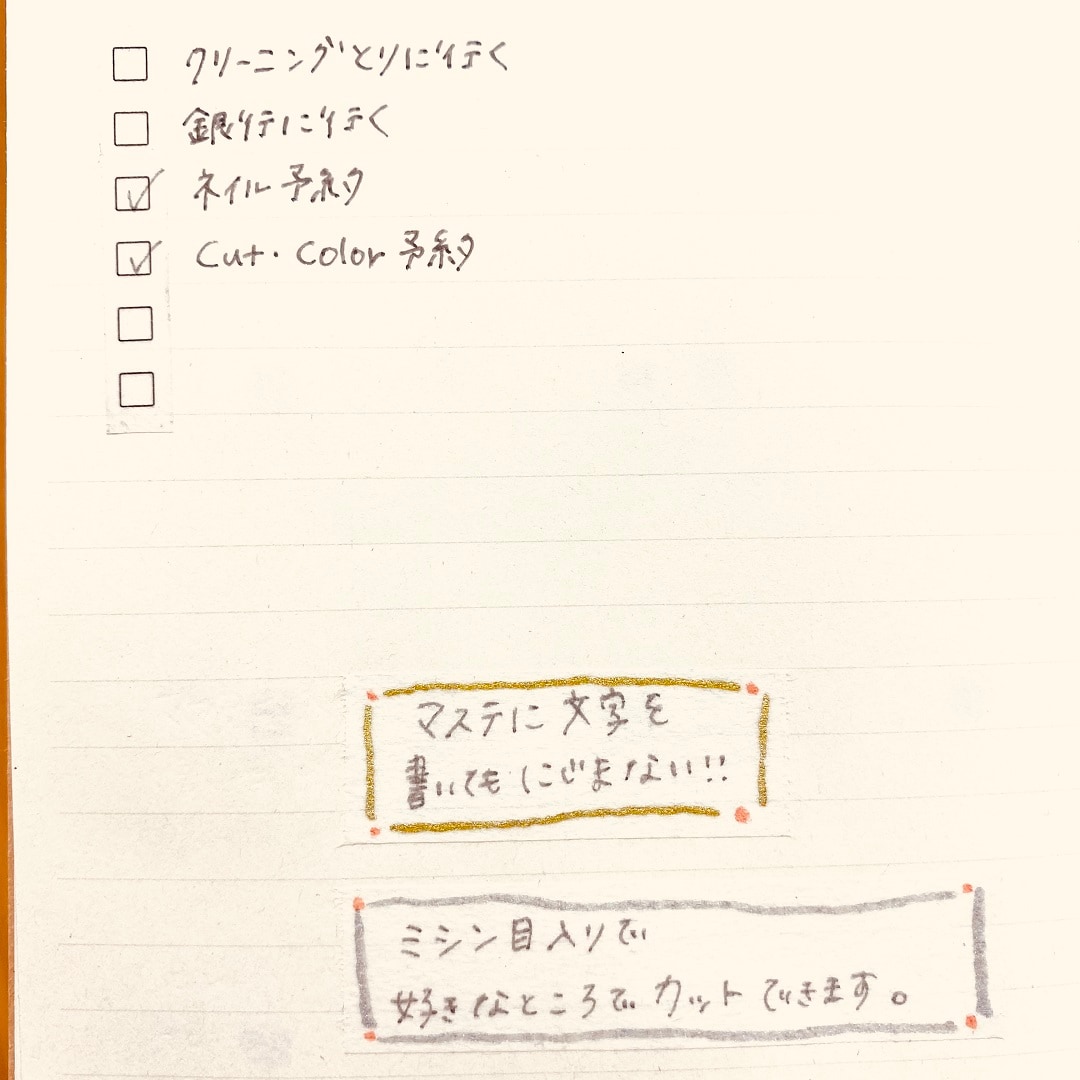 クリーニングとりに行く
銀行に行く
ネイル予約
Cut・Color 予約
マステに文字を
書いてもにじまない!!
ミシン目入りで
好きなところでカットできます。